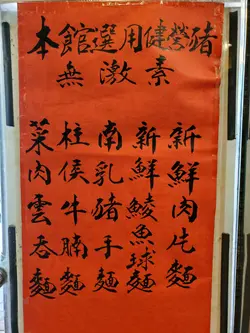 本館選用健營猪
無激素
新鮮肉圪麵
新鮮鯪魚球麵
南乳豬手麵
柱侯牛腩麵
菜肉雲吞麵